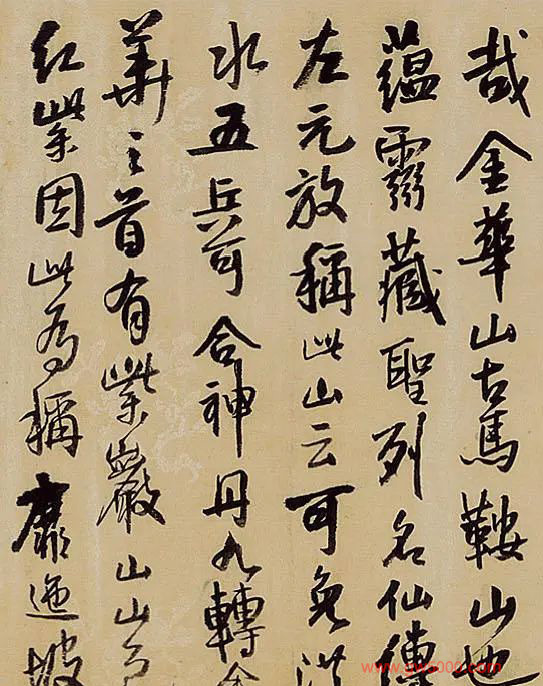 哉金華山古馬鞍山也
蘊靈藏聖列名仙傳
左元放稱此山云可免洪
水五兵可合神丹九轉金
華之首有紫巖山山色
紅紫因此為稱靡迤坡